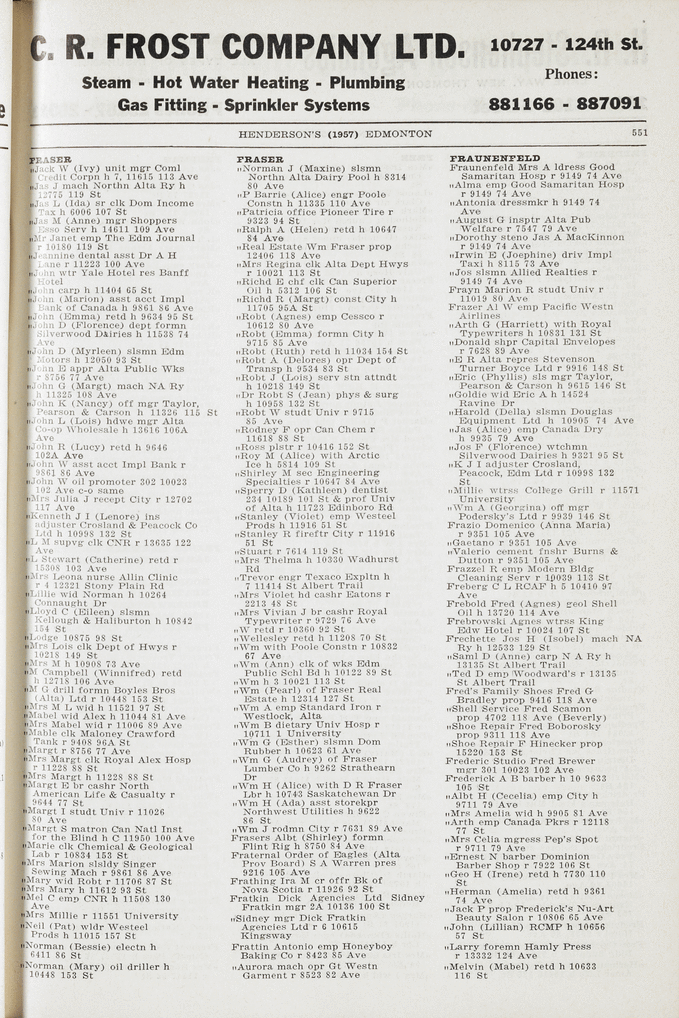 C. R. FROST COMPANY LTD.
10727 - 124th St.
Steam - Hot Water Heating - Plumbing
Gas Fitting - Sprinkler Systems
Phones:
881166 - 887091
HENDERSON'S (1957) EDMONTON
551
FRASER
"Jack W (Ivy) unit mgr Coml
Credit Corpn h 7, 11615 113 Ave
"Jas J mach Northn Alta Ry h
12775 119 St
"Jas L (Ida) sr clk Dom Income
Tax h 6006 107 St
"Jas M (Anne) mgr Shoppers
Esso Serv h 14611 109 Ave
"Mr Janet emp The Edm Journal
r 10180 119 St
"Jeannine dental asst Dr A H
Lane r 11223 100 Ave
"John wtr Yale Hotel res Banff
Hotel
"John carp h 11404 65 St
"John (Marion) asst acct Impl
Bank of Canada h 9861 86 Ave
"John (Emma) retd h 9634 95 St
"John D (Florence) dept formn
Silverwood Dairies h 11538 74
Ave
"John D (Myrleen) slsmn Edm
Motors h 12050 93 St
"John E appr Alta Public Wks
r 8756 77 Ave
"John G (Margt) mach NA Ry
h 11325 108 Ave
"John K (Nancy) off mgr Taylor,
Pearson & Carson h 11326 115 St
"John L (Lois) hdwe mgr Alta
Co-op Wholesale h 13616 106A
Ave
"John R (Lucy) retd h 9646
102A Ave
"John W asst acct Impl Bank r
9861 86 Ave
"John W oil promoter 302 10023
102 Ave c-o same
"Mrs Julia J recept City r 12702
117 Ave
"Kenneth J I (Lenore) ins
adjuster Crosland & Peacock Co
Ltd h 10998 132 St
"L M supvg clk CNR r 13635 122
Ave
"L Stewart (Catherine) retd r
15308 103 Ave
"Mrs Leona nurse Allin Clinic
r 4 12321 Stony Plain Rd
"Lillie wid Norman h 10264
Connaught Dr
"Lloyd C (Eileen) slsmn
Kellough & Haliburton h 10842
154 St
"Lodge 10875 98 St
"Mrs Lois clk Dept of Hwys r
10218 149 St
"Mrs M h 10908 73 Ave
"M Campbell (Winnifred) retd
h 12718 106 Ave
"M G drill formn Boyles Bros
(Alta) Ltd r 10448 153 St
"Mrs M L wid h 11521 97 St
"Mabel wid Alex h 11044 81 Ave
"Mrs Mabel wid r 11006 89 Ave
"Mable clk Maloney Crawford
Tank r 9408 96A St
"Margt r 8756 77 Ave
"Mrs Margt clk Royal Alex Hosp
r 11228 88 St
"Mrs Margt h 11228 88 St
"Margt E br cashr North
American Life & Casualty r
9644 77 St
"Margt I studt Univ r 11026
80 Ave
"Margt S matron Can Natl Inst
for the Blind h C 11950 100 Ave
"Marie clk Chemical & Geological
Lab r 10834 153 St
"Mrs Marion slsldy Singer
Sewing Mach r 9861 86 Ave
"Mary wid Robt r 11706 87 St
"Mrs Mary h 11612 93 St
"Mel C emp CNR h 11508 130
Ave
"Mrs Millie r 11551 University
"Neil (Pat) wldr Westeel
Prods h 11015 157 St
"Norman (Bessie) electn h
6411 86 St
"Norman (Mary) oil driller h
10448 153 St
FRASER
"Norman J (Maxine) slsmn
Northn Alta Dairy Pool h 8314
80 Ave
"P Barrie (Alice) engr Poole
Constn h 11335 110 Ave
"Patricia office Pioneer Tire r
9323 94 St
"Ralph A (Helen) retd h 10647
84 Ave
"Real Estate Wm Fraser prop
12406 118 Ave
"Mrs Regina clk Alta Dept Hwys
r 10021 113 St
"Richd E chf clk Can Superior
Oil h 5312 106 St
"Richd R (Margt) const City h
11705 95A St
"Robt (Agnes) emp Cessco r
10612 80 Ave
"Robt (Emma) formn City h
9715 85 Ave
"Robt (Ruth) retd h 11034 154 St
"Robt A (Delores) opr Dept of
Transp h 9534 83 St
"Robt J (Lois) serv stn attndt
h 10218 149 St
"Dr Robt S (Jean) phys & surg
h 10958 132 St
"Robt W studt Univ r 9715
85 Ave
"Rodney F opr Can Chem r
11618 88 St
"Ross plstr r 10416 152 St
"Roy M (Alice) with Arctic
Ice h 5814 109 St
"Shirley M sec Engineering
Specialties r 10647 84 Ave
"Sperry D (Kathleen) dentist
234 10189 101 St & prof Univ
of Alta h 11723 Edinboro Rd
"Stanley (Violet) emp Westeel
Prods h 11916 51 St
"Stanley R fireftr City r 11916
51 St
"Stuart r 7614 119 St
"Mrs Thelma h 10330 Wadhurst
Rd
"Trevor engr Texaco Expltn h
7 11414 St Albert Trail
"Mrs Violet hd cashr Eatons r
2213 48 St
"Mrs Vivian J br cashr Royal
Typewriter r 9729 76 Ave
"W retd r 10360 92 St
"Wellesley retd h 11208 70 St
"Wm with Poole Constn r 10832
67 Ave
"Wm (Ann) clk of wks Edm
Public Schl Bd h 10122 89 St
"Wm h 3 10021 113 St
"Wm (Pearl) of Fraser Real
Estate h 12314 127 St
"Wm A emp Standard Iron r
Westlock, Alta
"Wm B dietary Univ Hosp r
10711 1 University
"Wm G (Esther) slsmn Dom
Rubber h 10623 61 Ave
"Wm G (Audrey) of Fraser
Lumber Co h 9262 Strathearn
Dr
"Wm H (Alice) with D R Fraser
Lbr h 10743 Saskatchewan Dr
"Wm H (Ada) asst storekpr
Northwest Utilities h 9622
86 St
"Wm J rodmn City r 7631 89 Ave
Frasers Albt (Shirley) formn
Flint Rig h 8750 84 Ave
Fraternal Order of Eagles (Alta
Prov Board) S A Warren pres
9216 105 Ave
Frathing Ira M cr offr Bk of
Nova Scotia r 11926 92 St
Fratkin Dick Agencies Ltd Sidney
Fratkin mgr 2A 10136 100 St
"Sidney mgr Dick Fratkin
Agencies Ltd r 6 10615
Kingsway
Frattin Antonio emp Honeyboy
Baking Co r 8423 85 Ave
"Aurora mach opr Gt Westn
Garment r 8523 82 Ave
FRAUNENFELD
Fraunenfeld Mrs A ldress Good
Samaritan Hosp r 9149 74 Ave
"Alma emp Good Samaritan Hosp
r 9149 74 Ave
"Antonia dressmkr h 9149 74
Ave
"August G insptr Alta Pub
Welfare r 7547 79 Ave
"Dorothy steno Jas A MacKinnon
r 9149 74 Ave
"Irwin E (Josephine) driv Impl
Taxi h 8115 73 Ave
"Jos slsmn Allied Realties r
9149 74 Ave
Frayn Marion R studt Univ r
11019 80 Ave
Frazer Al W emp Pacific Westn
Airlines
"Arth G (Harriett) with Royal
Typewriters h 10831 131 St
"Donald shpr Capital Envelopes
r 7628 89 Ave
"E R Alta repres Stevenson
Turner Boyce Ltd r 9916 148 St
"Eric (Phyllis) sls mgr Taylor,
Pearson & Carson h 9615 146 St
"Goldie wid Eric A h 14524
Ravine Dr
"Harold (Della) slsmn Douglas
Equipment Ltd h 10905 74 Ave
"Jas (Alice) emp Canada Dry
h 9935 79 Ave
"Jos F (Florence) wtchmn
Silverwood Dairies h 9321 95 St
"K J I adjuster Crosland,
Peacock, Edm Ltd r 10998 132
St
"Millie wtrss College Grill r 11571
University
"Wm A (Georgina) off mgr
Podersky's Ltd r 9939 146 St
Frazio Domenico (Anna Maria)
r 9351 105 Ave
"Gaetano r 9351 105 Ave
"Valerio cement fnshr Burns &
Dutton r 9351 105 Ave
Frazzel R emp Modern Bldg
Cleaning Serv r 10039 113 St
Freberg C L RCAF h 5 10410 97
Ave
Frebold Fred (Agnes) geol Shell
Oil h 13720 114 Ave
Frebrowski Agnes wtrss King
Edw Hotel r 10024 107 St
Frechette Jos H (Isobel) mach NA
Ry h 12533 129 St
"Saml D (Anne) carp N A Ry h
13135 St Albert Trail
"Ted D emp Woodward's r 13135
St Albert Trail
Fred's Family Shoes Fred G
Bradley prop 9416 118 Ave
"Shell Service Fred Scamon
prop 4702 118 Ave (Beverly)
"Shoe Repair Fred Boborosky
prop 9311 118 Ave
"Shoe Repair F Hinecker prop
15220 153 St
Frederic Studio Fred Brewer
mgr 301 10023 102 Ave
Frederick A B barber h 10 9633
105 St
"Albt H (Cecelia) emp City h
9711 79 Ave
"Mrs Amelia wid h 9905 81 Ave
"Arth emp Canada Pkrs r 12118
77 St
"Mrs Celia mgress Pep's Spot
r 9711 79 Ave
"Ernest N barber Dominion
Barber Shop r 7922 106 St
"Geo H (Irene) retd h 7730 110
St
"Herman (Amelia) retd h 9361
74 Ave
"Jack P prop Frederick's Nu-Art
Beauty Salon r 10806 65 Ave
"John (Lillian) RCMP h 10656
57 St
"Larry foremn Hamly Press
r 13332 124 Ave
"Melvin (Mabel) retd h 10633
116 St